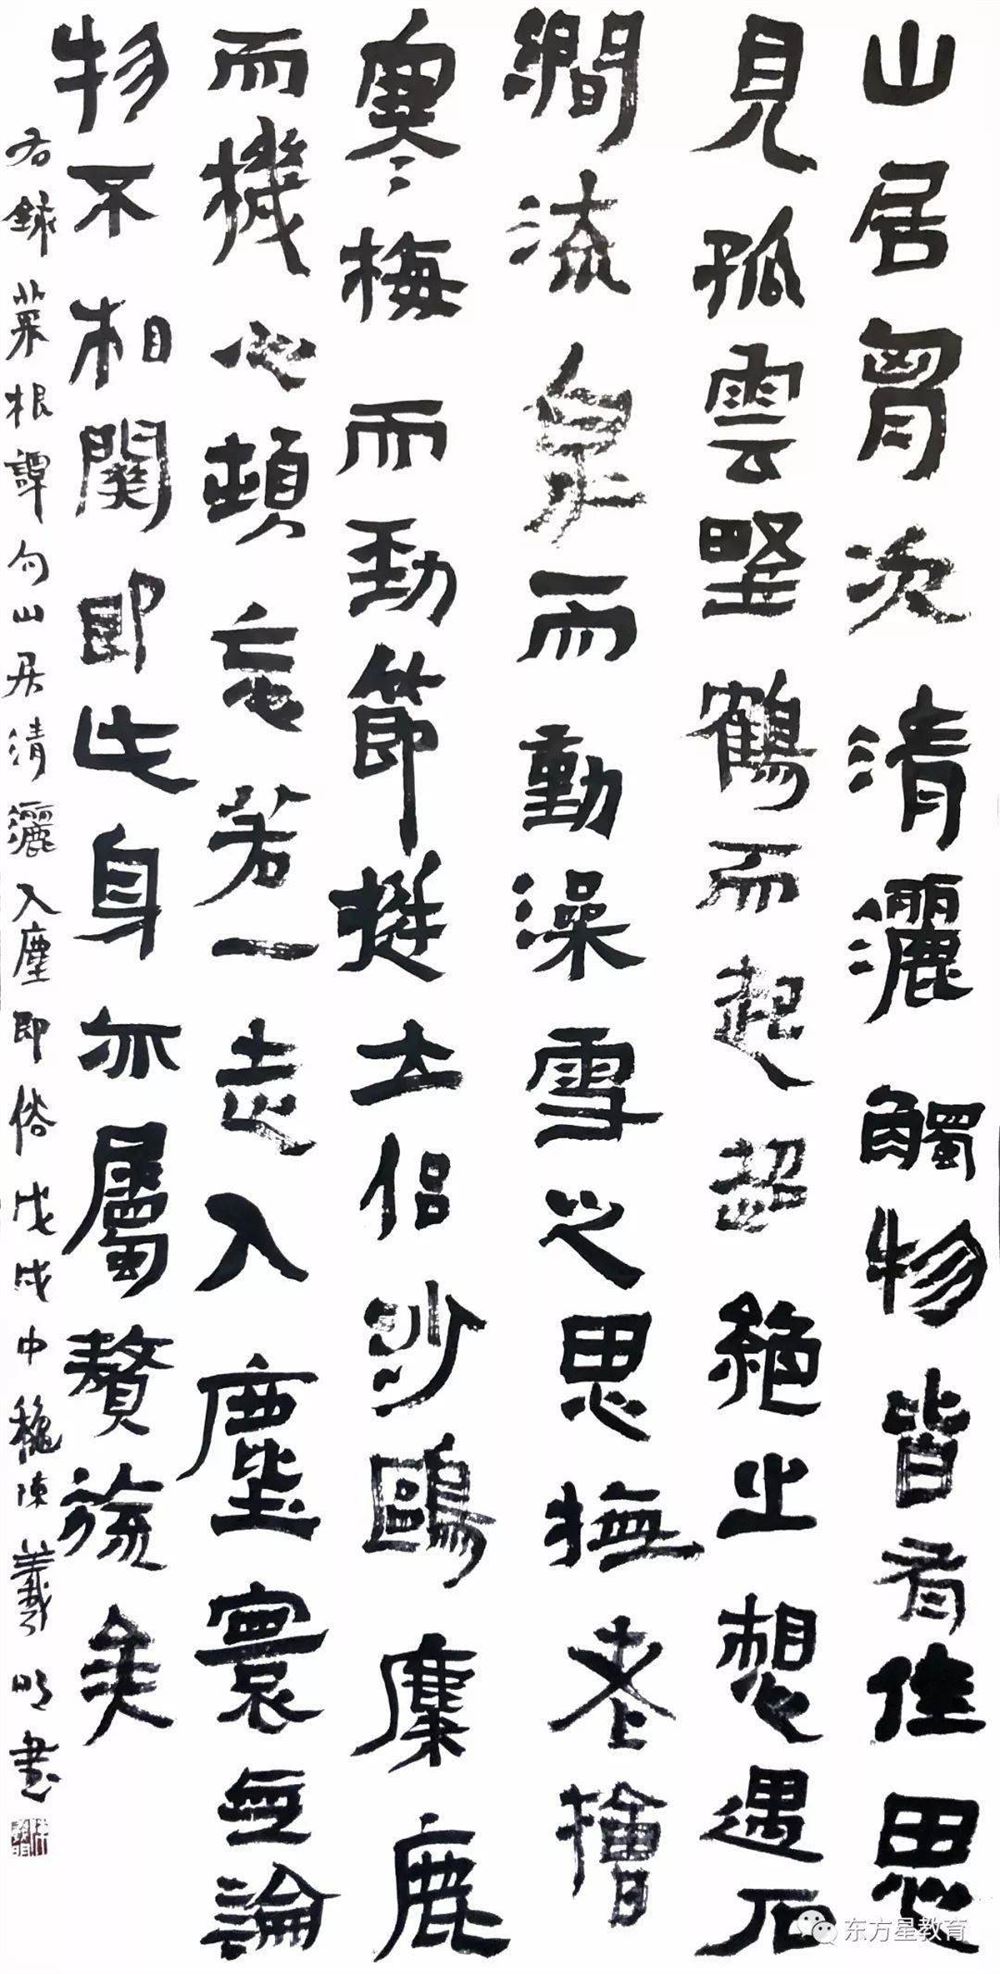 山居胷次清灑觸物皆有佳思
見孤雲埜鶴而起超絶之想遇石
澗流泉而動澡雪之思撫老檜
寒梅而勁節挺立侣沙鷗麋鹿
而機心頓忘若一走入塵寰無論
物不相関即此身亦屬贅旒矣
右録菜根譚句山居清灑入塵即俗戊戌中穐陳義明書
东方星教育